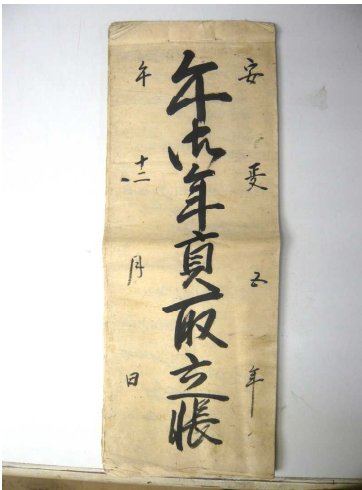 安政五年
午御年貢取立帳
午十二月日